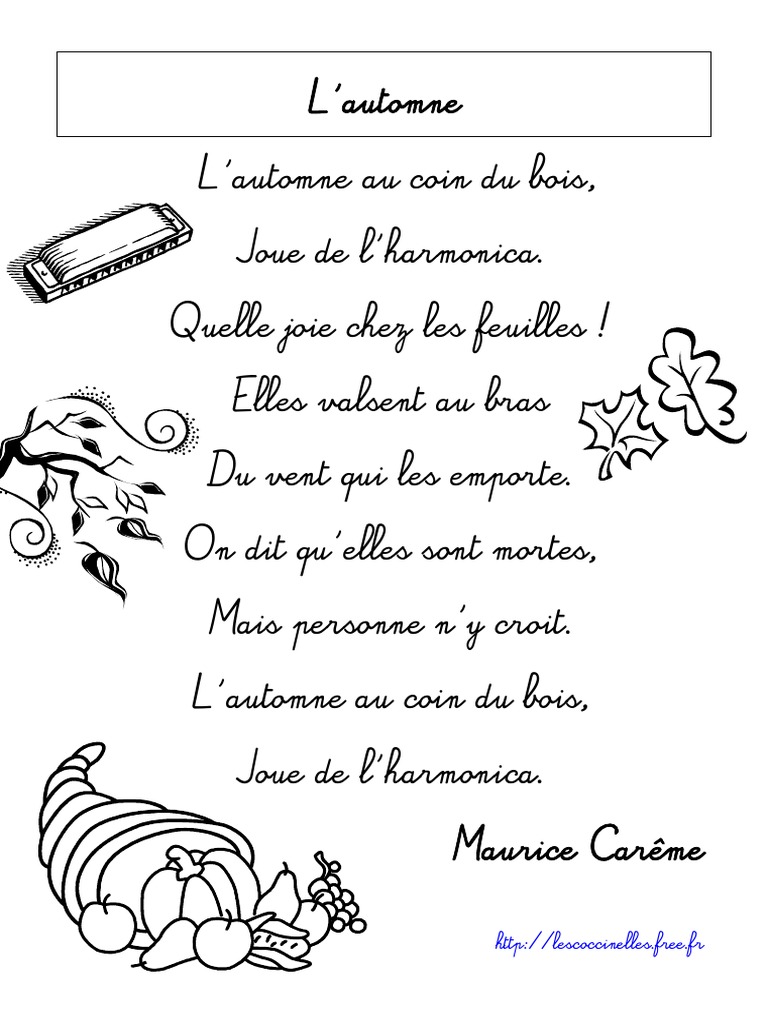 L'automne
L'automne au coin du bois,
Joue de l'harmonica.
Quelle joie chez les feuilles !
Elles valsent au bras
Du vent qui les emporte.
On dit qu'elles sont mortes,
Mais personne n'y croit.
L'automne au coin du bois,
Joue de l'harmonica.
Maurice Carême
http://lescoccinelles.free.fr